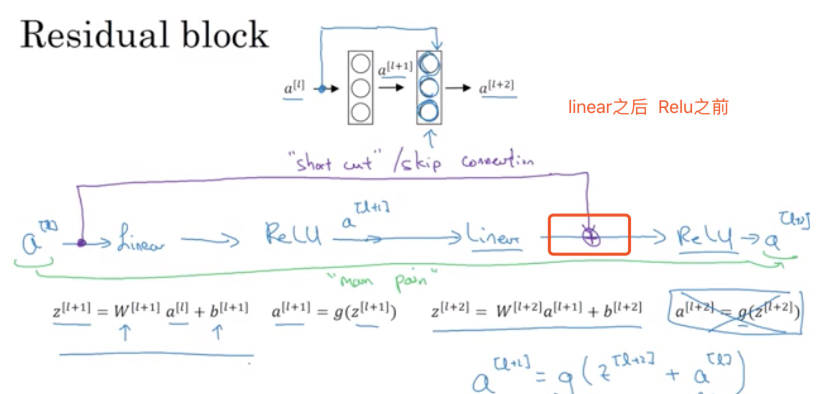 Residual block
a^[l] a^[l+1] a^[l+2]
linear之后 Relu之前
"short cut" / skip connection
a^[l] Linear ReLU a^[l+1] Linear ReLU a^[l+2]
"main path"
z^[l+1] = W^[l+1] a^[l] + b^[l+1] a^[l+1] = g(z^[l+1]) z^[l+2] = W^[l+2]a^[l+1] + b^[l+2] a^[l+2] = g(z^[l+2])
a^[l+2] = g(z^[l+2] + a^[l])